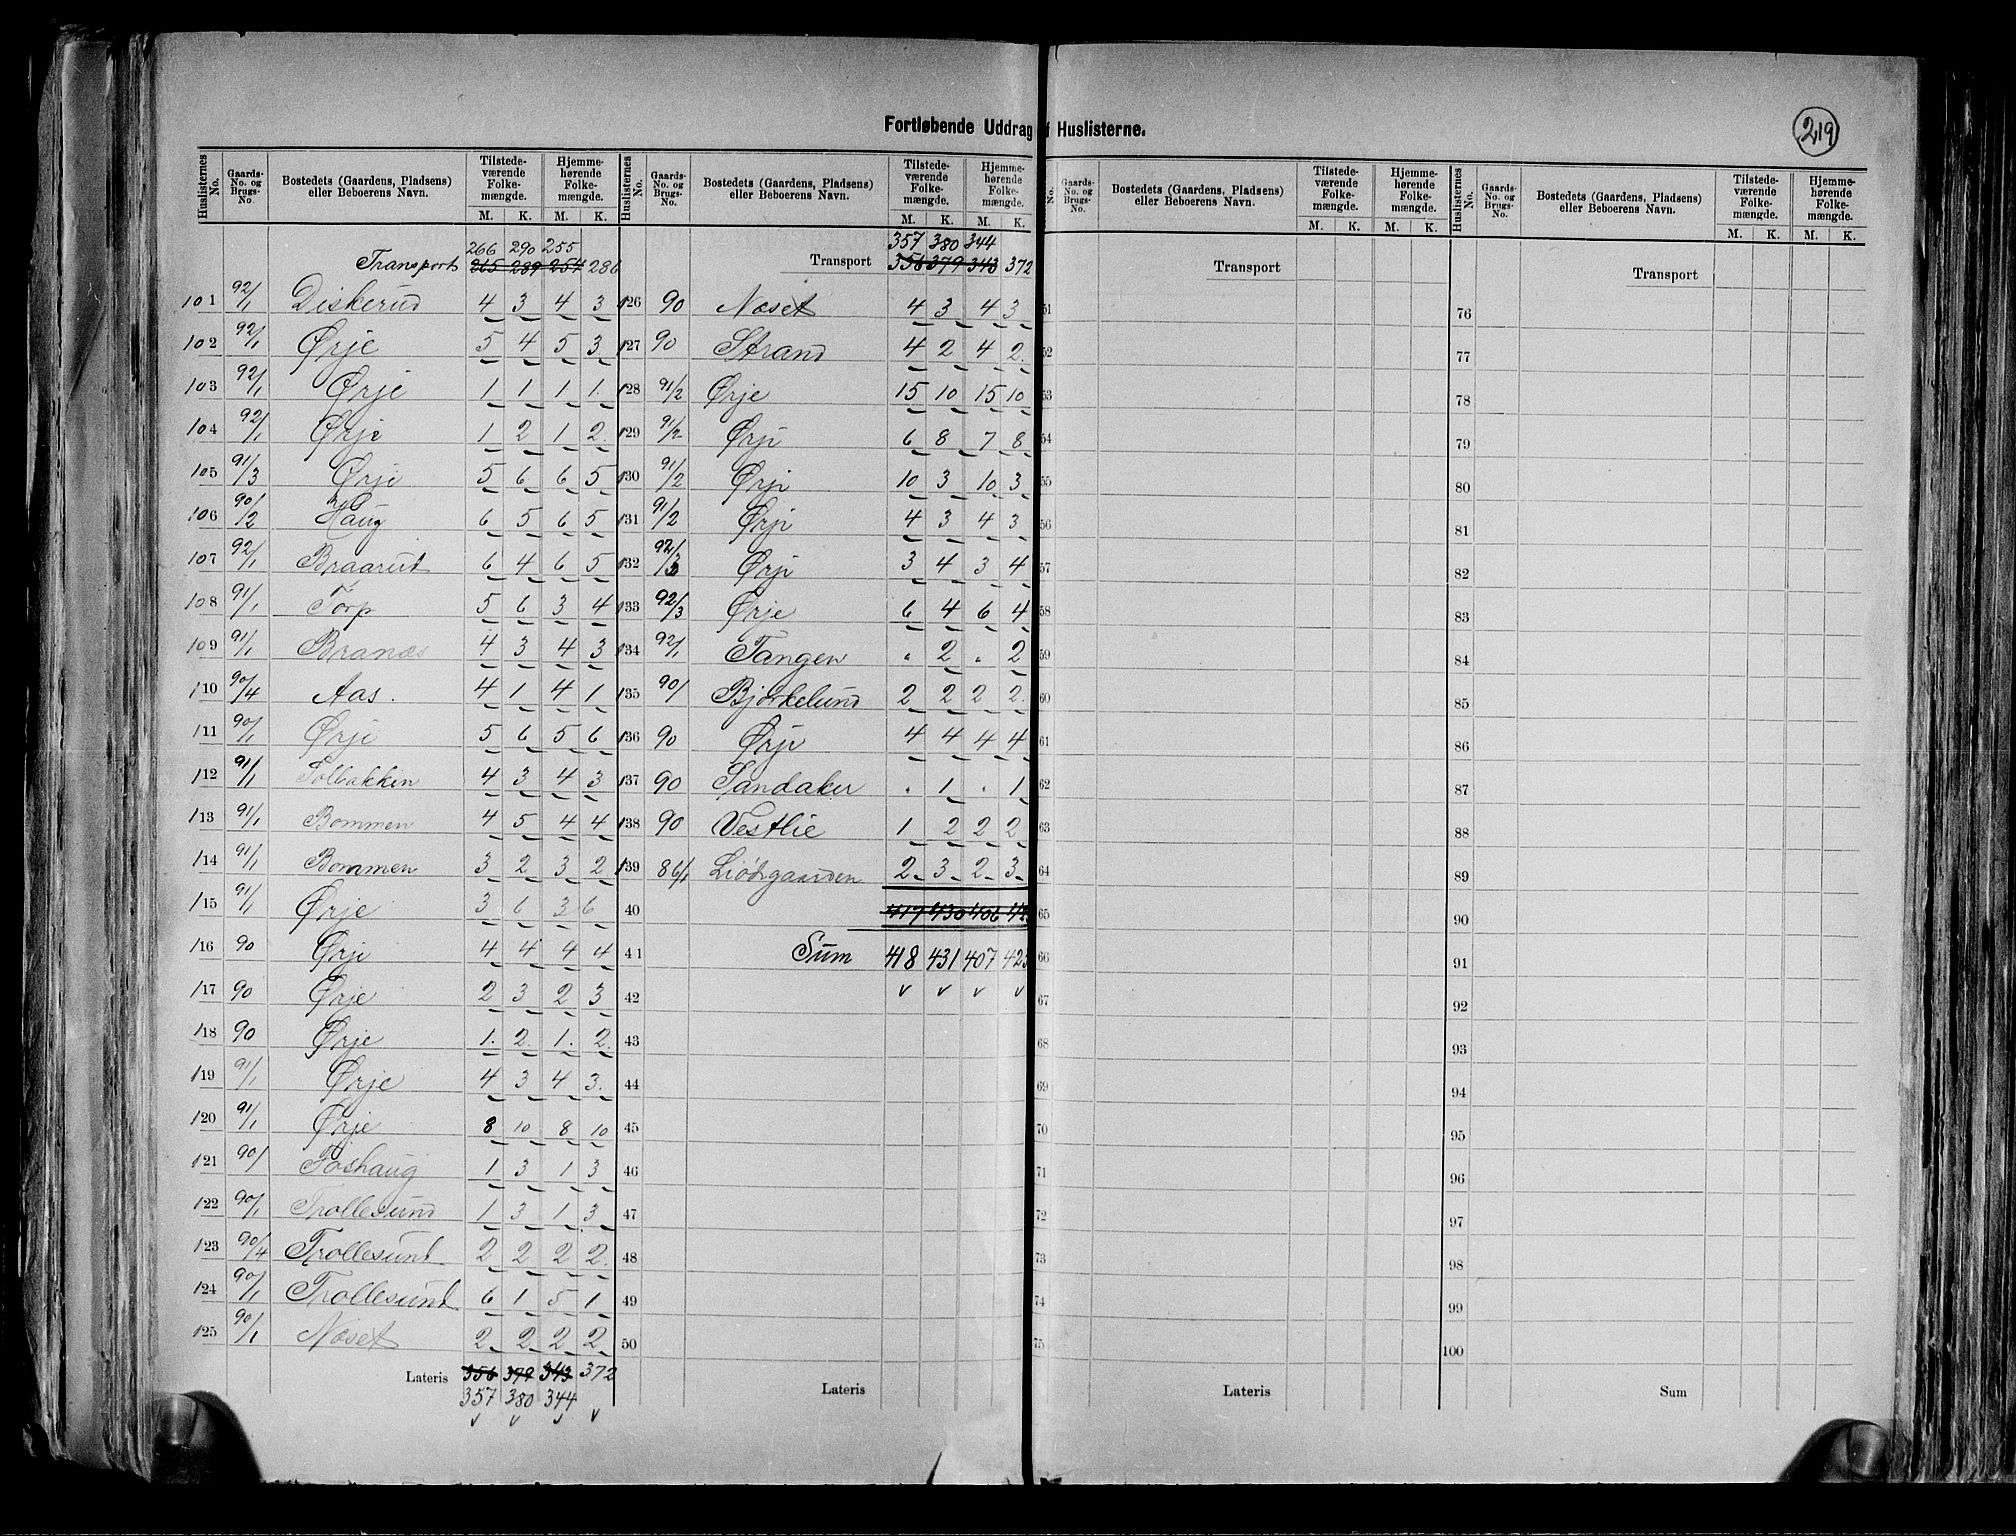 219
Fortløbende Uddrag af Huslisterne.
Huslisternes No. | Gaards-No. og Brugs-No. | Bostedets (Gaardens, Pladsens) eller Beboerens Navn. | Tilstedeværende Folkemængde. M. K. | Hjemmehørende Folkemængde. M. K.
266 290 255
Transport 265 289 254 286
101 92/1 Diskerud 4 3 4 3
102 92/1 Ørje 5 4 5 3
103 92/1 Ørje 1 1 1 1
104 92/1 Ørje 1 2 1 2
105 91/3 Ørje 5 6 6 5
106 90/2 Haug 6 5 6 5
107 92/1 Braarut 6 4 6 5
108 91/1 Torp 5 6 3 4
109 91/1 Branæs 4 3 4 3
110 90/4 Aas. 4 1 4 1
111 90/1 Ørje 5 6 5 6
112 91/1 Solbakken 4 3 4 3
113 91/1 Bommen 4 5 4 4
114 91/1 Bommen 3 2 3 2
115 91/1 Ørje 3 6 3 6
116 90 Ørje 4 4 4 4
117 90 Ørje 2 3 2 3
118 90 Ørje 1 2 1 2
119 91/1 Ørje 4 3 4 3
120 91/1 Ørje 8 10 8 10
121 90/ Foshaug 1 3 1 3
122 90/1 Trollesund 1 3 1 3
123 90/4 Trollesund 2 2 2 2
124 90/1 Trollesund 6 1 5 1
125 90/1 Næset 2 2 2 2
Lateris 356 379 343 372
357 380 344
Huslisternes No. | Gaards-No. og Brugs-No. | Bostedets (Gaardens, Pladsens) eller Beboerens Navn. | Tilstedeværende Folkemængde. M. K. | Hjemmehørende Folkemængde. M. K.
357 380 344
Transport 356 379 343 372
126 90 Næset 4 3 4 3
127 90 Strand 4 2 4 2
128 91/2 Ørje 15 10 15 10
129 91/2 Ørje 6 8 7 8
130 91/2 Ørje 10 3 10 3
131 91/2 Ørje 4 3 4 3
132 92/3 Ørje 3 4 3 4
133 92/3 Ørje 6 4 6 4
134 92/1 Tangen " 2 " 2
135 90/ Bjørkelund 2 2 2 2
136 90 Ørje 4 4 4 4
137 90 Sandaker " 1 " 1
138 90 Vestlie 1 2 2 2
139 86/1 2 3 2 3
40 417 430 406
41 Sum 418 431 407 423
42
43
44
45
46
47
48
49
50
Lateris
No. | Gaards-No. og Brugs-No. | Bostedets (Gaardens, Pladsens) eller Beboerens Navn. | Tilstedeværende Folkemængde. M. K. | Hjemmehørende Folkemængde. M. K.
Transport
51
52
53
54
55
56
57
58
59
60
61
62
63
64
65
66
67
68
69
70
71
72
73
74
75
Lateris
Huslisternes No. | Gaards-No. og Brugs-No. | Bostedets (Gaardens, Pladsens) eller Beboerens Navn. | Tilstedeværende Folkemængde. M. K. | Hjemmehørende Folkemængde. M. K.
Transport
76
77
78
79
80
81
82
83
84
85
86
87
88
89
90
91
92
93
94
95
96
97
98
99
100
Sum